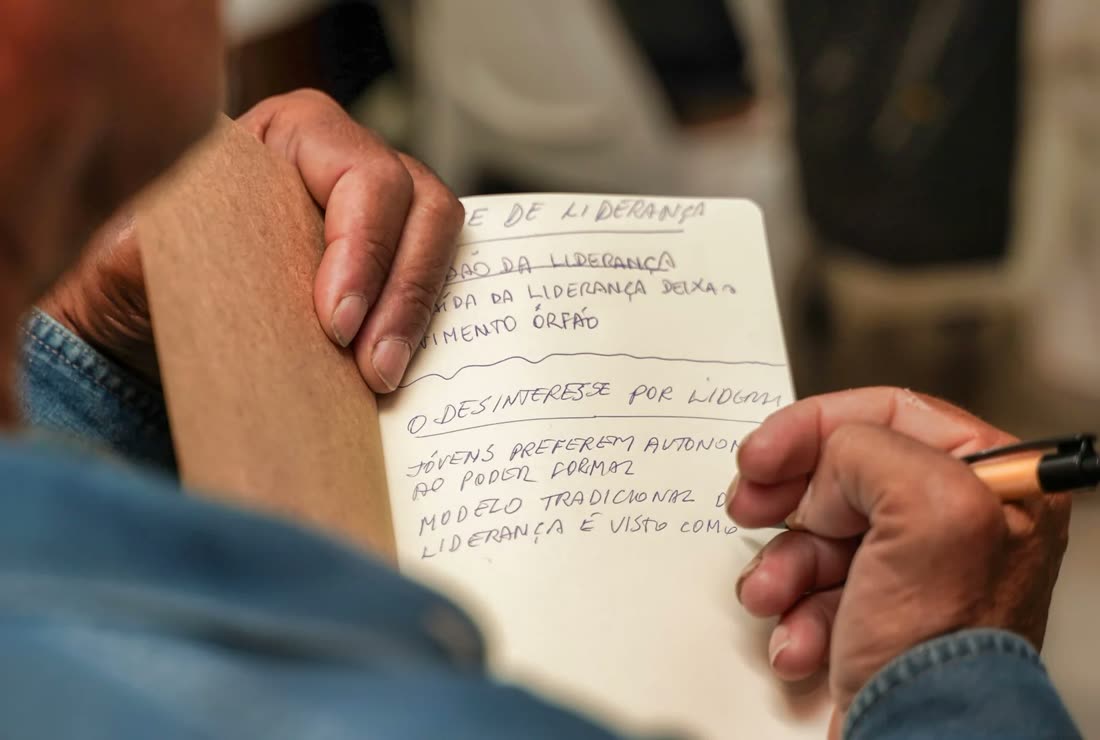 E DE LIDERANÇA
DÃO DA LIDERANÇA
AÍDA DA LIDERANÇA DEIXA O
VIMENTO ÓRFÃO
O DESINTERESSE POR LIDERA
JÓVENS PREFEREM AUTONOM
AO PODER FORMAL
MODELO TRADICIONAL D
LIDERANÇA É VISTO COMO